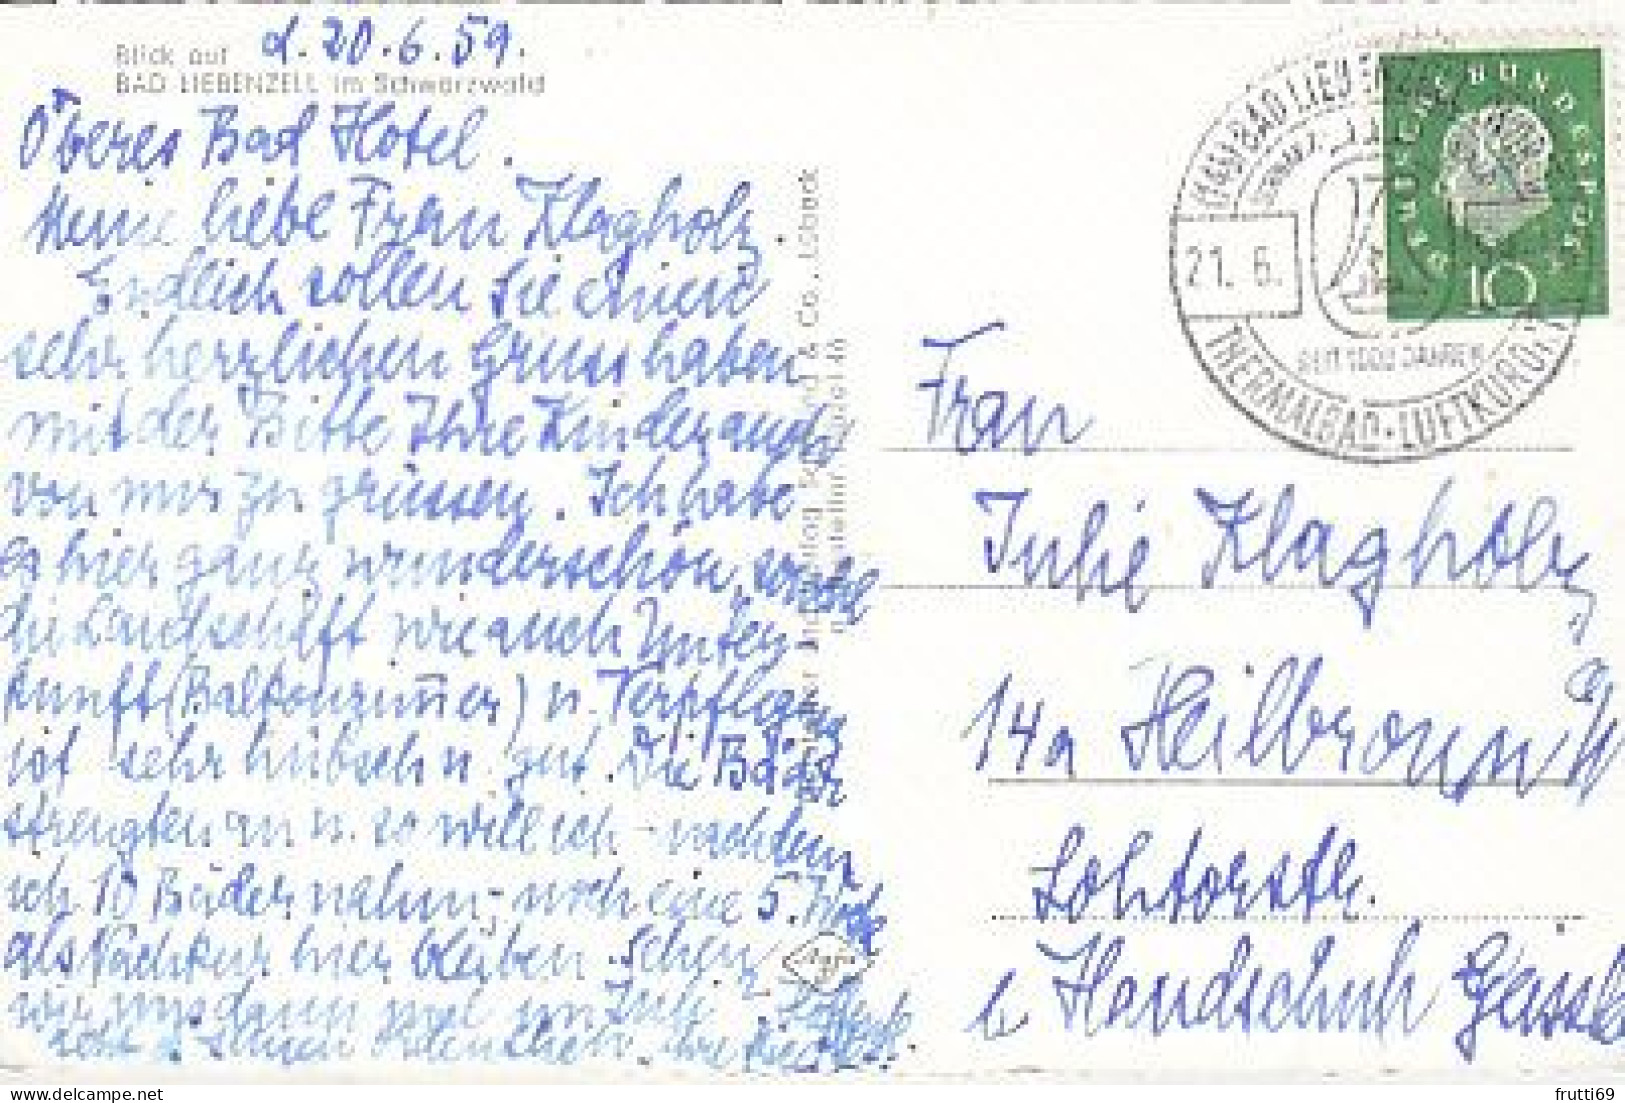 Blick auf
BAD LIEBENZELL im Schwarzwald
d. 20.6.59.
Oberes Bad Hotel.
Meine liebe Frau Klagholz.
Endlich sollen Sie einen
sehr herzlichen Gruss haben
mit der Bitte Ihre Kinder auch
von mir zu grüssen. Ich habe
es hier ganz wunderschön, sowohl
die Landschaft wie auch Unter-
kunft (Balkonzim̅er) u. Verpflegung
ist sehr hübsch u. gut. Die Bäder
strengten an u. so will ich - nachdem
ich 10 Bäder nahm, - noch eine 5. Woche
als Nachkur hier bleiben. Sehen
wir uns dann mal im Juli
BAD LIEBENZELL
21. 6.
SEIT 1000 JAHREN
THERMALBAD · LUFTKURORT
DEUTSCHE BUNDESPOST
10
Frau
Julie Klagholz
14a Heilbronn a/N
Lohtorstr.
b. Handschuh
Agfa
frutti69